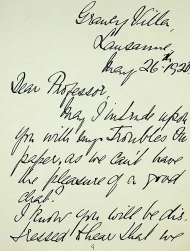 Villa,
Lausanne,
May 26th 192
Dear Professor,
May I intrude upon
you with my troubles on
paper, as we can't have
the pleasure of a good
chat.
I know you will be dis-
tressed to hear that we